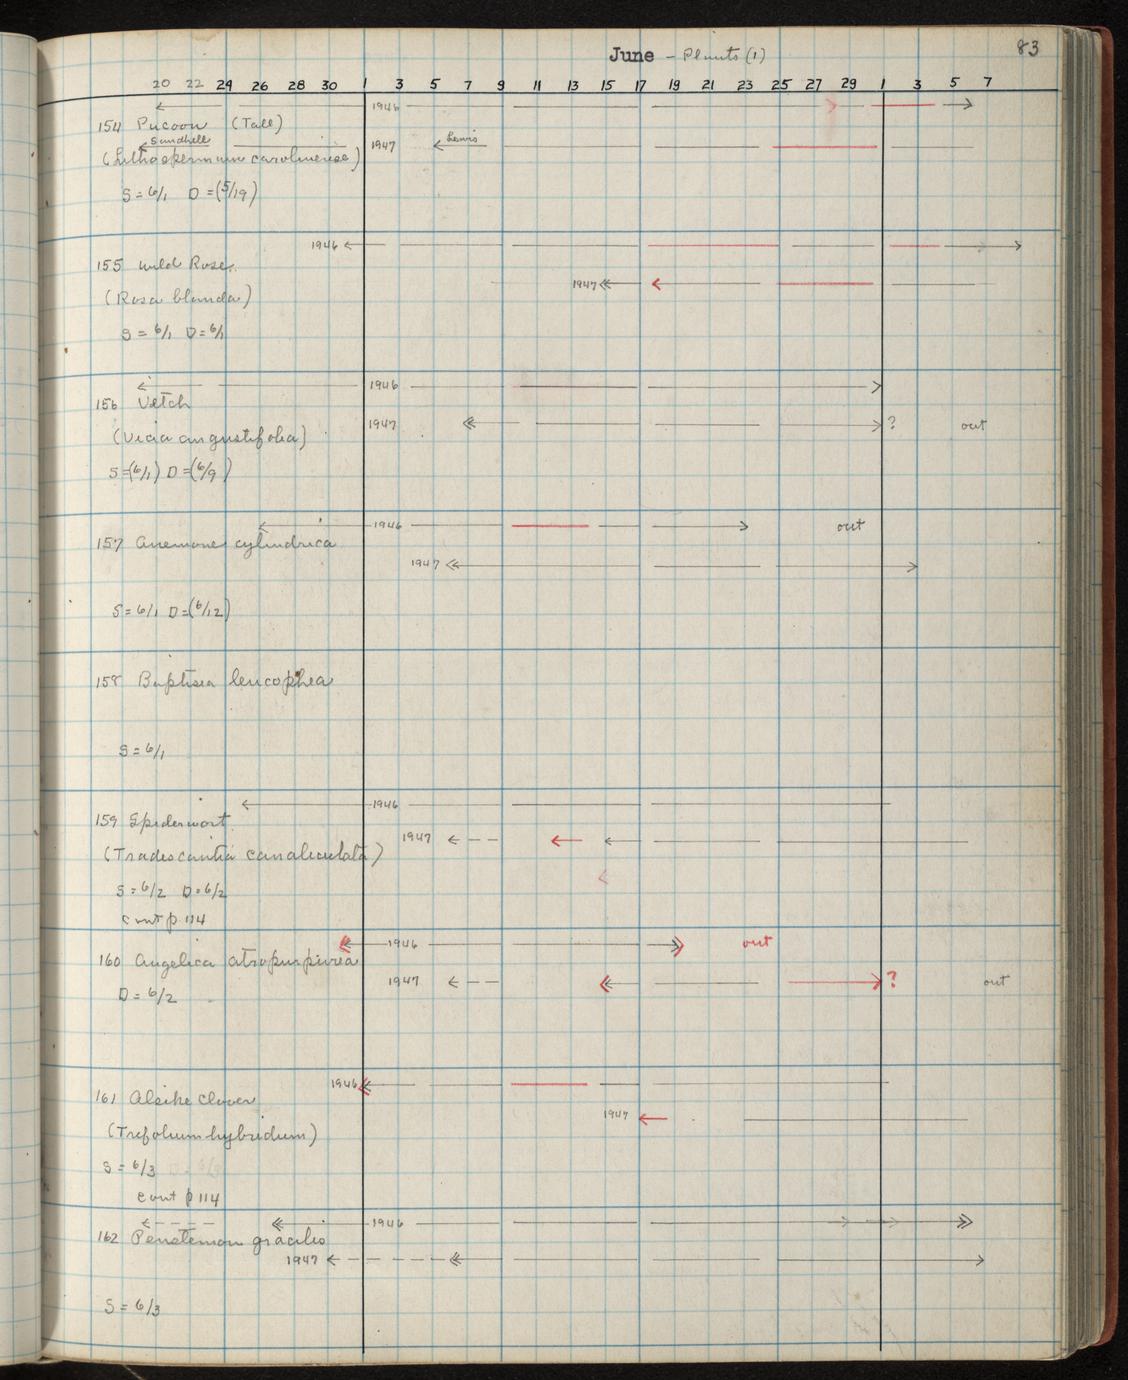 June - Plants (1)
83
20 22 24 26 28 30 1 3 5 7 9 11 13 15 17 19 21 23 25 27 29 1 3 5 7
1946
154 Pucoon (Tall)
Sandhill
1947 Lewis
(Lithospermum carolinense)
S = 6/1 D = (5/19)
1946
155 Wild Rose
1947
(Rosa blanda)
S = 6/1 D = 6/1
1946
156 Vetch
1947 ? out
(Vicia angustifolia)
S = (6/1) D = (6/9)
1946 out
157 Anemone cylindrica
1947
S = 6/1 D = (6/12)
158 Baptisia leucophea
S = 6/1
1946
159 Spiderwort
1947
(Tradescantia canaliculata)
S = 6/2 D = 6/2
cont p 114
1946 out
160 Angelica atropurpurea
1947 ? out
D = 6/2
1946
161 Alsike Clover
1947
(Trifolium hybridum)
S = 6/3
cont p 114
1946
162 Penstemon gracilis
1947
S = 6/3